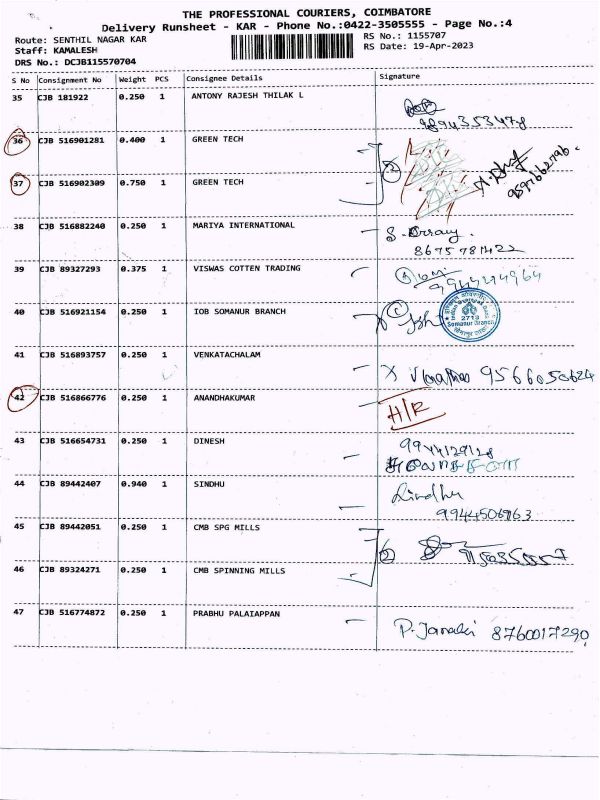 THE PROFESSIONAL COURIERS, COIMBATORE
Delivery Runsheet - KAR - Phone No.:0422-3505555 - Page No.:4
Route: SENTHIL NAGAR KAR
Staff: KAMALESH
DRS No.: DCJB115570704
RS No.: 1155707
RS Date: 19-Apr-2023
S No Consignment No Weight PCS Consignee Details Signature
35 CJB 181922 0.250 1 ANTONY RAJESH THILAK L
9894353478
36 CJB 516901281 0.400 1 GREEN TECH
37 CJB 516902309 0.750 1 GREEN TECH
2
9597662796
38 CJB 516882240 0.250 1 MARIYA INTERNATIONAL
8675781422
39 CJB 89327293 0.375 1 VISWAS COTTEN TRADING
9944214964
40 CJB 516921154 0.250 1 IOB SOMANUR BRANCH
2713
Somanur Branch
41 CJB 516893757 0.250 1 VENKATACHALAM
X 9566050624
42 CJB 516866776 0.250 1 ANANDHAKUMAR
H/R
43 CJB 516654731 0.250 1 DINESH
44 CJB 89442407 0.940 1 SINDHU
Sindhu
9944506963
45 CJB 89442051 0.250 1 CMB SPG MILLS
2
46 CJB 89324271 0.250 1 CMB SPINNING MILLS
47 CJB 516774872 0.250 1 PRABHU PALAIAPPAN
P. Janaki 8760017290